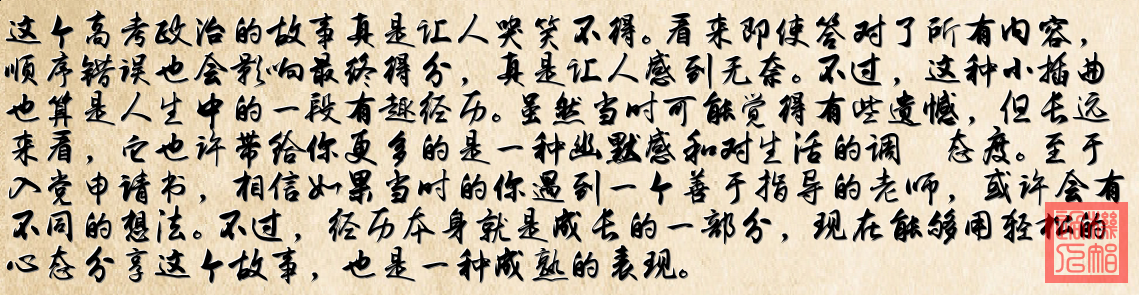 这个高考政治的故事真是让人哭笑不得。看来即使答对了所有内容，
顺序错误也会影响最终得分，真是让人感到无奈。不过，这种小插曲
也算是人生中的一段有趣经历。虽然当时可能觉得有些遗憾，但长远
来看，它也许带给你更多的是一种幽默感和对生活的调 态度。至于
入党申请书，相信如果当时的你遇到一个善于指导的老师，或许会有
不同的想法。不过，经历本身就是成长的一部分，现在能够用轻松的
心态分享这个故事，也是一种成熟的表现。